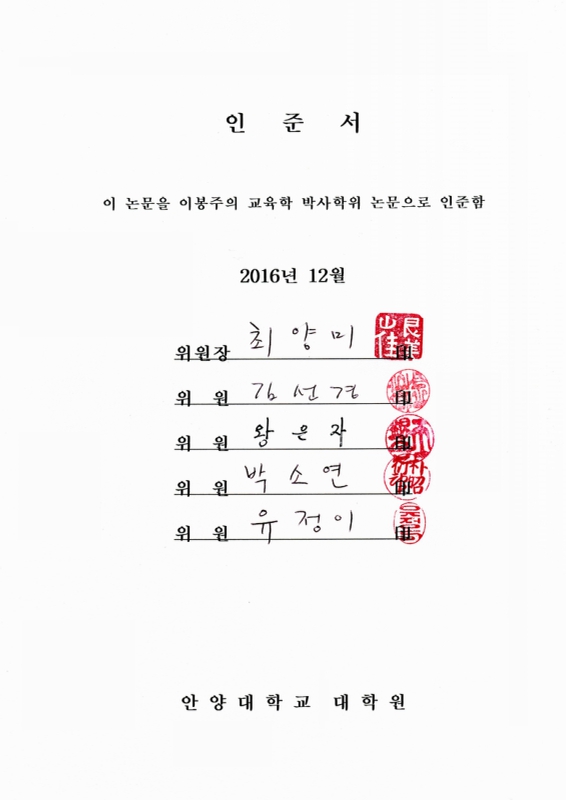 인 준 서
이 논문을 이봉주의 교육학 박사학위 논문으로 인준함
2016년 12월
위원장 최 양 미 印
위 원 김 선 경 印
위 원 왕 은 자 印
위 원 박 소 연 印
위 원 유 정 이 印
안 양 대 학 교 대 학 원